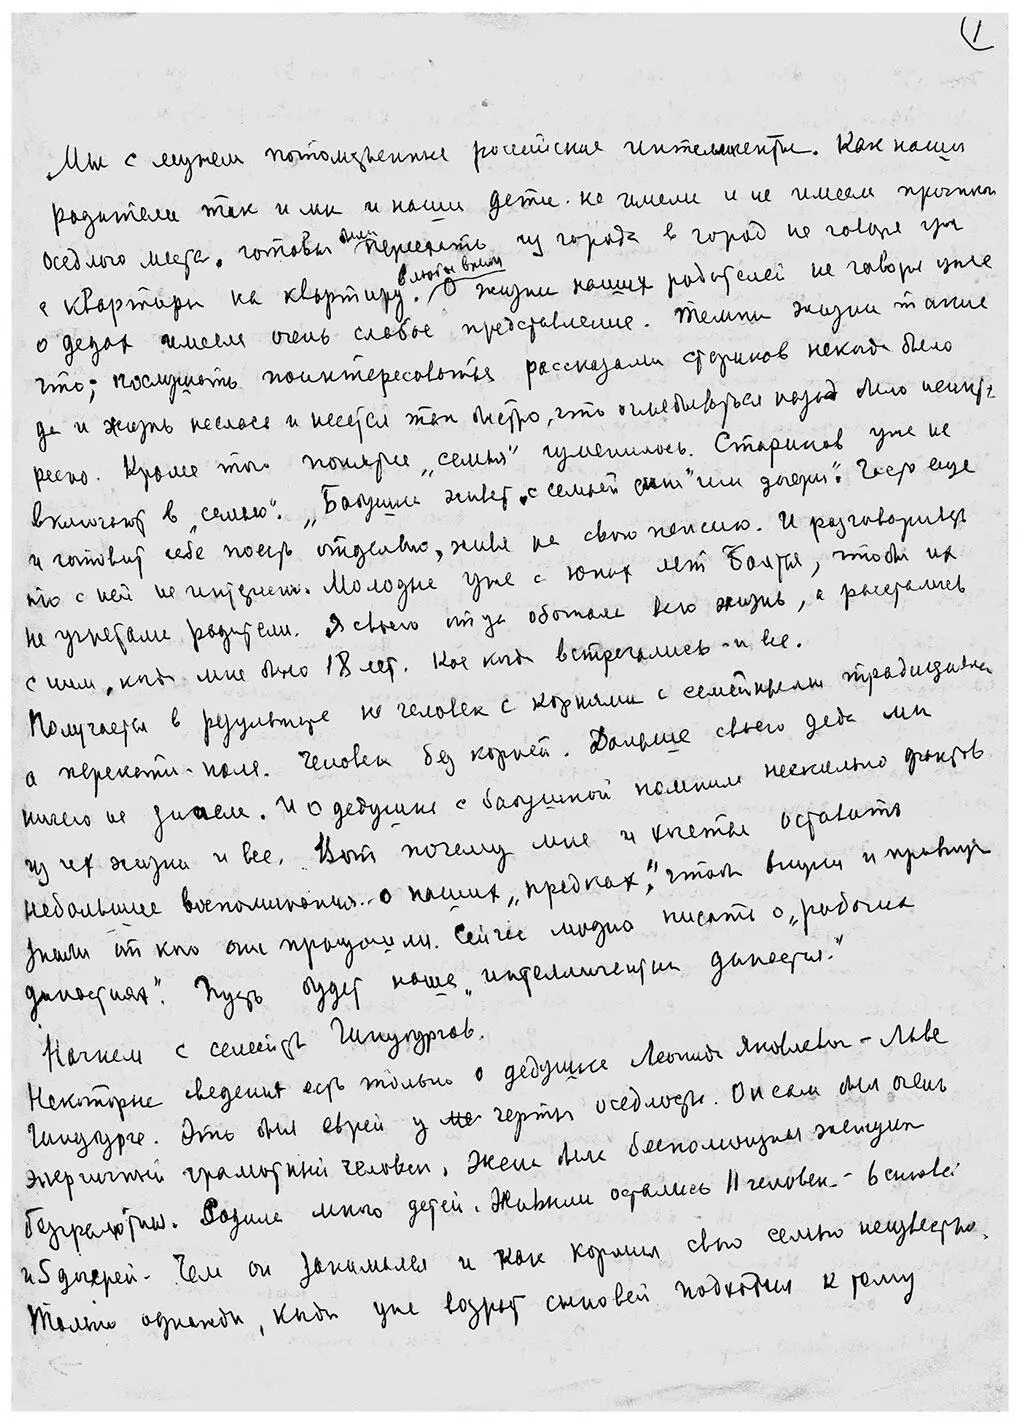 1
Мы с мужем потомственные российские интеллигенты. Как наши
родители так и мы и наши дети не имели и не имеем прочного
оседлого места. готовы были переехать из города в город не говоря уже
с квартиры на квартиру в любое время. О жизни наших родителей не говоря уже
о дедах имеем очень слабое представление. Темпы жизни такие
что, послушать поинтересоваться рассказами стариков некогда было
да и жизнь неслась и несется так быстро, что оглядываться назад было неинте-
ресно. Кроме того понятие „семья" изменилось. Стариков уже не
включают в „семью". „Бабушка живет с семьей сына" или дочери". Часто еще
и готовит себе поесть отдельно, живя на свою пенсию. И разговаривать
с ней не интересно. Молодые уже с юных лет боятся, чтобы их
не угнетали родители. Я своего отца обожала всю жизнь, а рассталась
с ним, когда мне было 18 лет. Кое когда встречались и все.
Получается в результате не человек с корнями с семейными традициями
а перекати-поле. Человек без корней. Дальше своего деда мы
ничего не знаем. И о дедушке с бабушкой помним несколько фактов
из их жизни и все. Вот почему мне и хочется оставить
небольшие воспоминания о наших „предках", чтобы внуки и правнуки
знали от кого они произошли. Сейчас модно писать о „рабочих
династиях". Пусть будет наша „интеллигентная династия."
Начнем с семейства Гинзбургов.
Некоторые сведения есть только о дедушке Леонида Яковлевича – Льве
Гинзбурге. Это был еврей из черты оседлости. Он сам был очень
энергичный грамотный человек. Жена была беспомощная женщина
безграмотная. Родила много детей. Живыми остались 11 человек – 6 сыновей
и 5 дочерей. Чем он занимался и как кормил свою семью неизвестно.
Только однажды, когда уже возраст сыновей подходил к тому